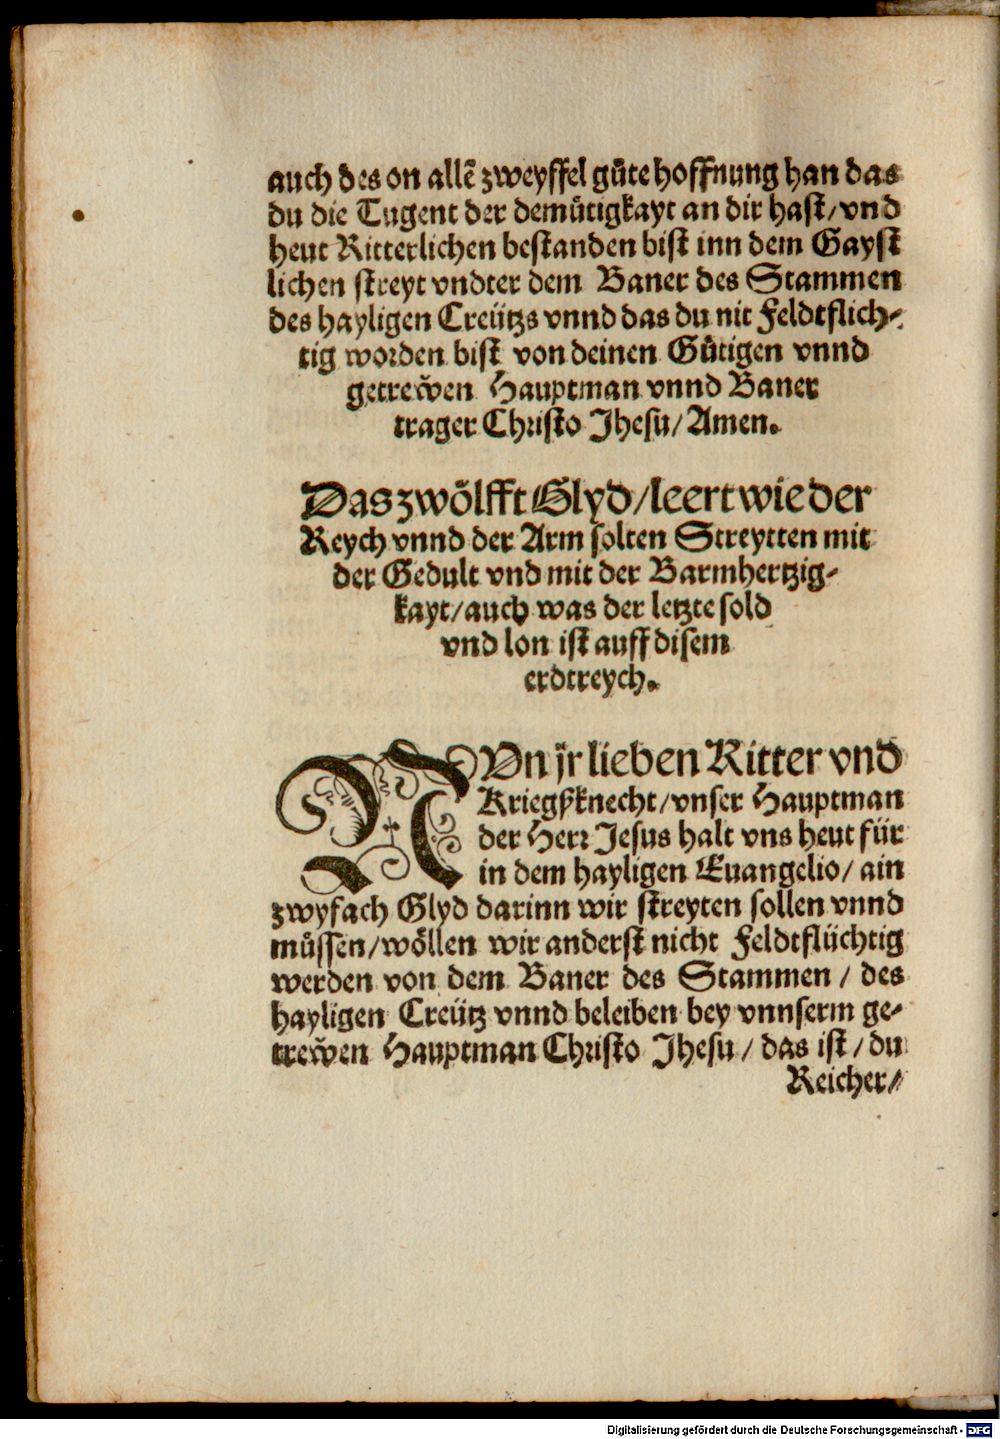 auch des on allẽ zweyffel gůte hoffnung han das
du die Tugent der demůtigkayt an dir hast/vnd
heut Ritterlichen bestanden bist inn dem Gayst
lichen streyt vndter dem Baner des Stammen
des hayligen Creützs vnnd das du nit Feldtflich-
tig worden bist von deinen Gůtigen vnnd
getrewen Hauptman vnnd Baner
trager Christo Jhesu/Amen.
Das zwölfft Glyd/leert wie der
Reych vnnd der Arm solten Streytten mit
der Gedult vnd mit der Barmhertzig-
kayt/auch was der letzte sold
vnd lon ist auff disem
erdtreych.
NVn jr lieben Ritter vnd
Kriegßknecht/vnser Hauptman
der Herr Jesus halt vns heut für
in dem hayligen Euangelio/ain
zwyfach Glyd darinn wir streyten sollen vnnd
müssen/wöllen wir anderst nicht Feldtflüchtig
werden von dem Baner des Stammen/des
hayligen Creütz vnnd beleiben bey vnnserm ge-
trewen Hauptman Christo Jhesu/das ist/du
Reicher/
Digitalisierung gefördert durch die Deutsche Forschungsgemeinschaft - DFG